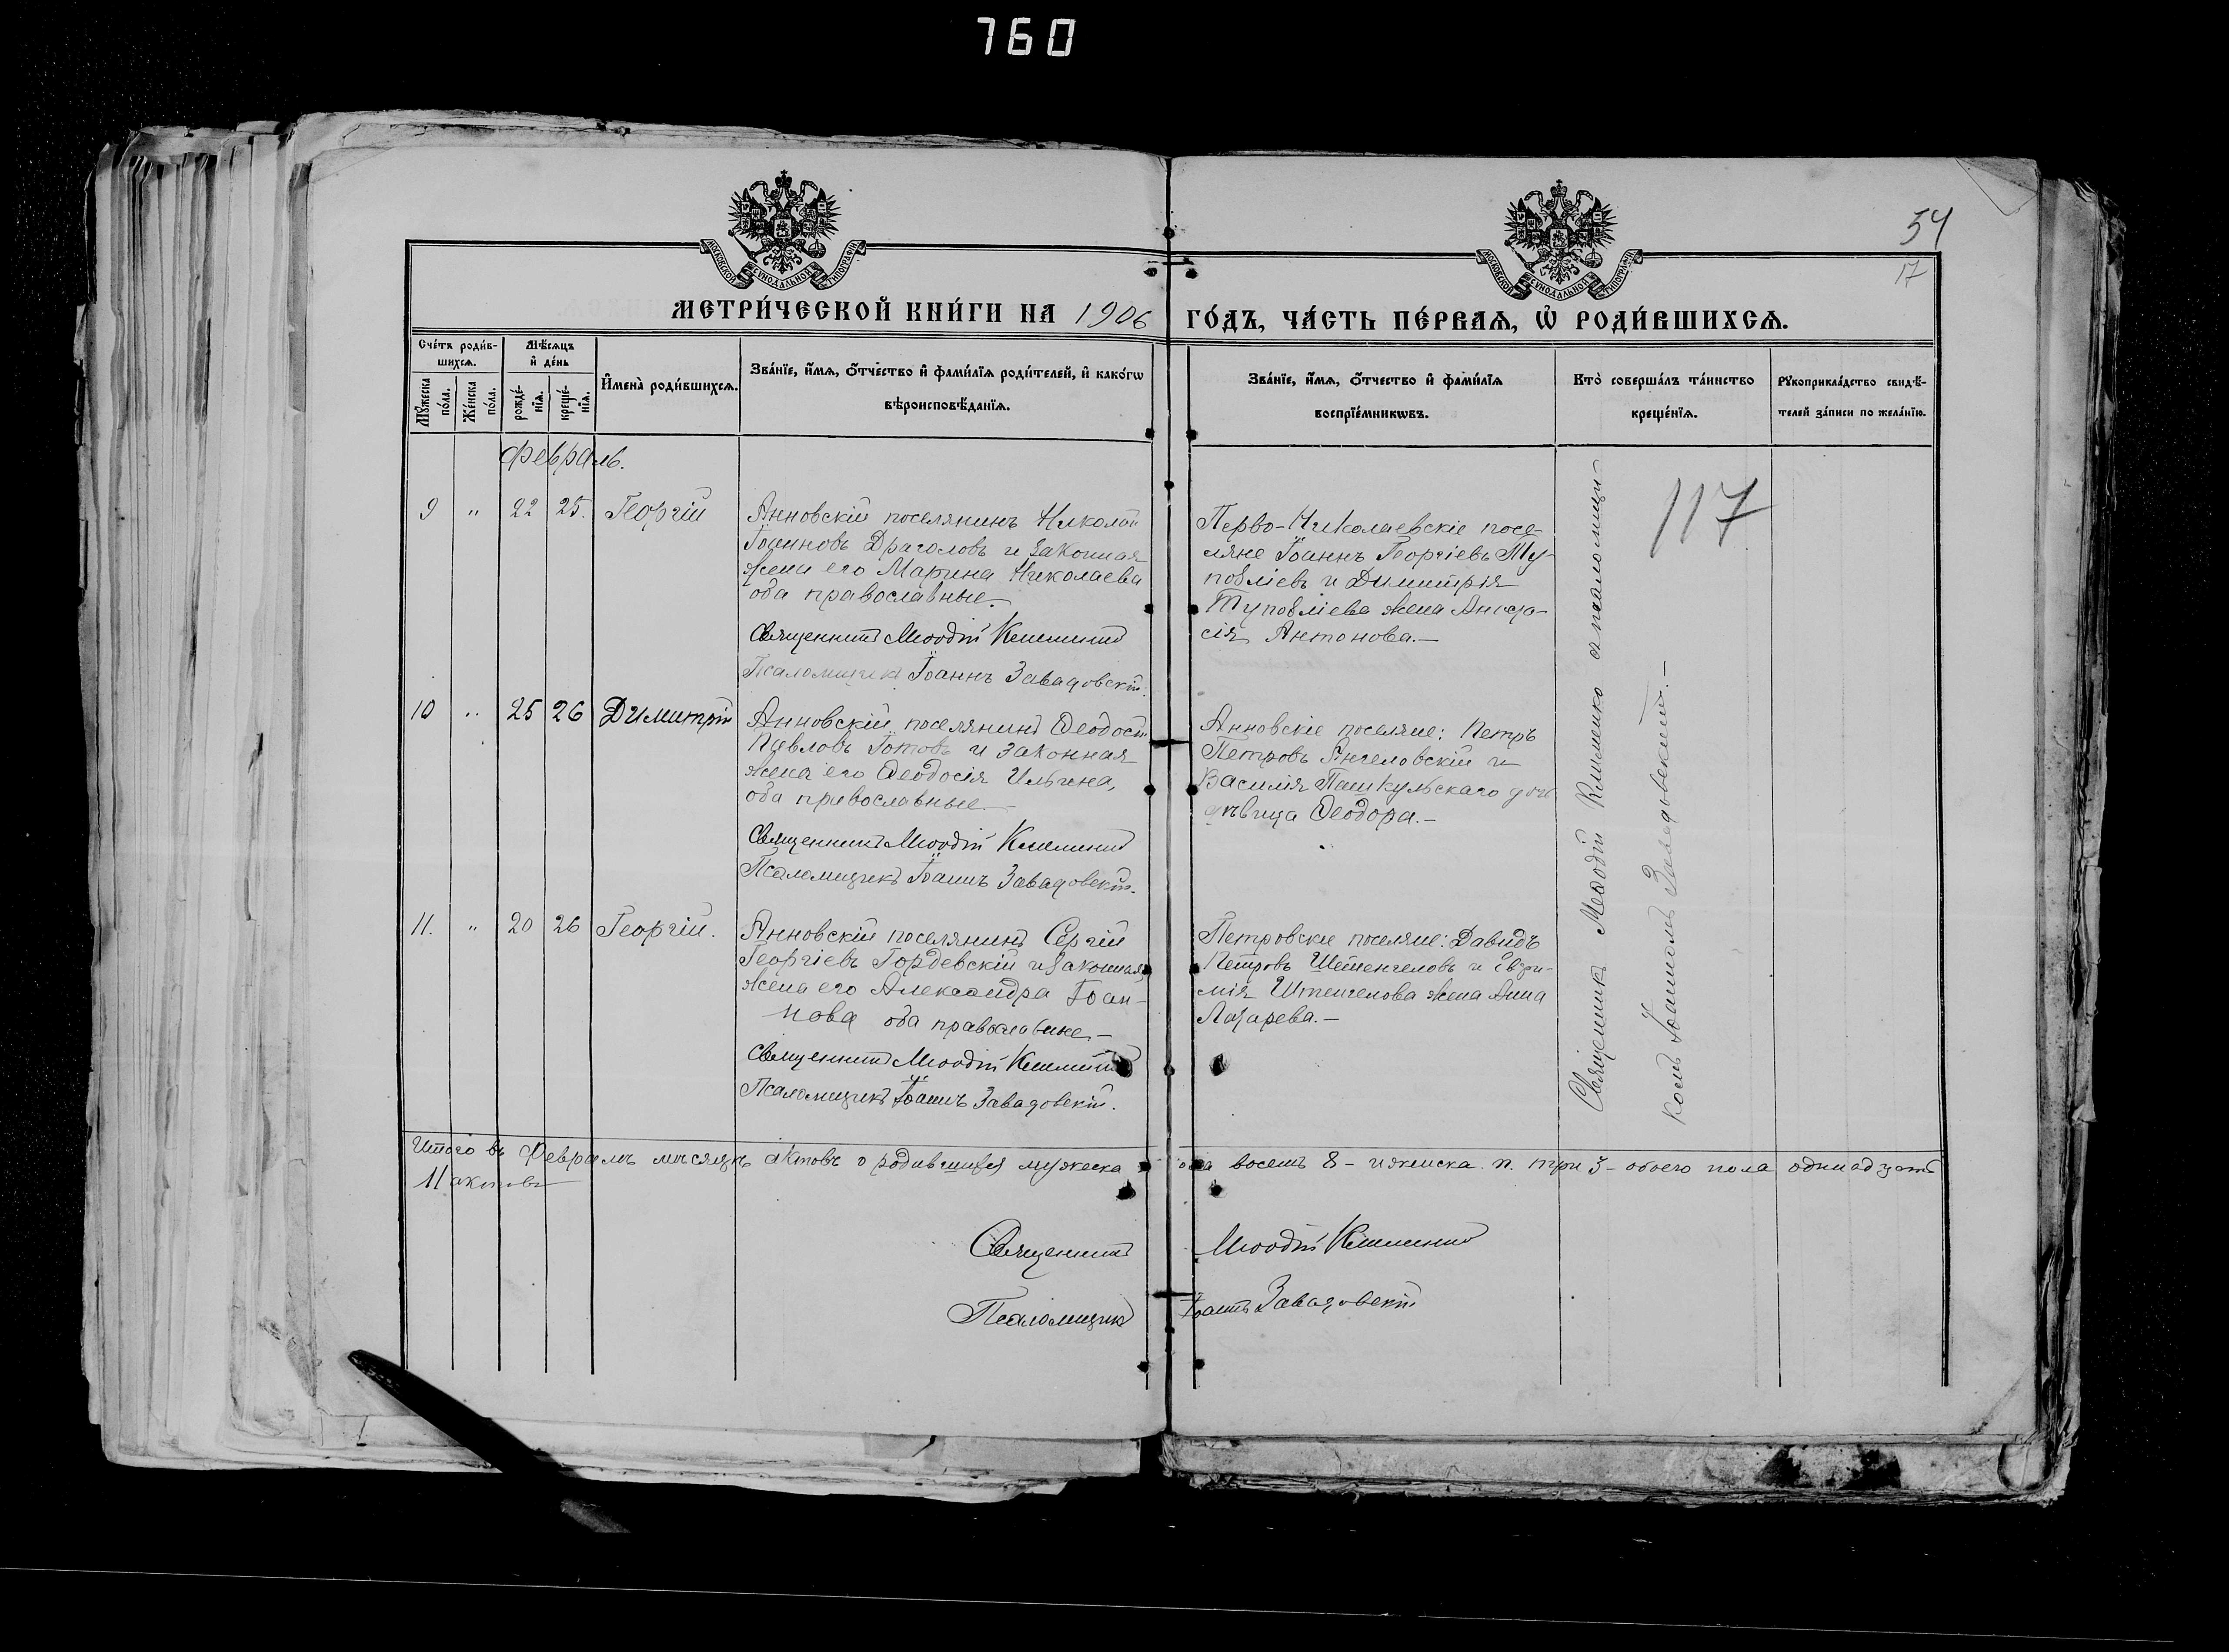 760
54
17
МЕТРИ́ЧЕСКОЙ КНИ́ГИ НА 1906 ГО́ДЪ, ЧА́СТЬ ПЕ́РВАѦ, Ѡ҆ РОДИ́ВШИХСѦ.
Сче́тъ роди́в-
шихсѧ.
Мꙋ́жеска по́ла.
Же́нска по́ла.
Мѣ́сѧцъ
и҆ де́нь
рожде́-
нїѧ.
креще́-
нїѧ.
И҆мена̀ роди́вшихсѧ.
Зва́нїе, и҆́мѧ, ѻ҆́тчество и҆ фами́лїѧ роди́телей, и҆ како́гѡ
вѣроисповѣ́данїѧ.
Зва́нїе, и҆́мѧ, ѻ҆́тчество и҆ фами́лїѧ
воспрїе́мникѡвъ.
Кто̀ соверша́лъ та́инство
креще́нїѧ.
Рꙋкоприкла́дство свидѣ́-
телей за́писи по жела́нїю.
Февраль.
9 " 22 25. Георгій
Анновскій поселянинъ Николай
Іоанновъ Драголовъ и законная
жена его Марина Николаева
оба православные.
Священникъ Меѳодій
Псаломщикъ Іоаннъ Завадовскій.
Перво-Николаевскіе посе-
ляне Іоаннъ Георгіевъ
и Димитрія
жена
Антонова.—
117
10 " 25 26 Димитрій
Анновскій поселянинъ Ѳеодосій
Павловъ и законная
жена его Ѳеодосія Ильина,
оба православные.—
Священникъ Меѳодій
Псаломщикъ Іоаннъ Завадовскій.
Анновскіе поселяне: Петръ
Петровъ Ангеловскій и
Василія Пашкульскаго дочь
дѣвица Ѳеодора.—
11. " 20 26 Георгій.
Анновскій поселянинъ Сергій
Георгіевъ и законная
жена его Александра Іоан-
нова оба православные.—
Священникъ Меѳодій
Псаломщикъ Іоаннъ Завадовскій.
Петровскіе поселяне: Давидъ
Петровъ и
жена Анна
Лазарева.—
Священникъ Меѳодій съ псаломщи-
комъ Іоанномъ Завадовскимъ.—
Итого въ Февралѣ мѣсяцѣ актовъ о родившихся мужеска пола восемь 8 – и женска п. три 3 – обоего пола одинадцать
11 актовъ
Священникъ Меѳодій
Псаломщикъ Іоаннъ Завадовскій